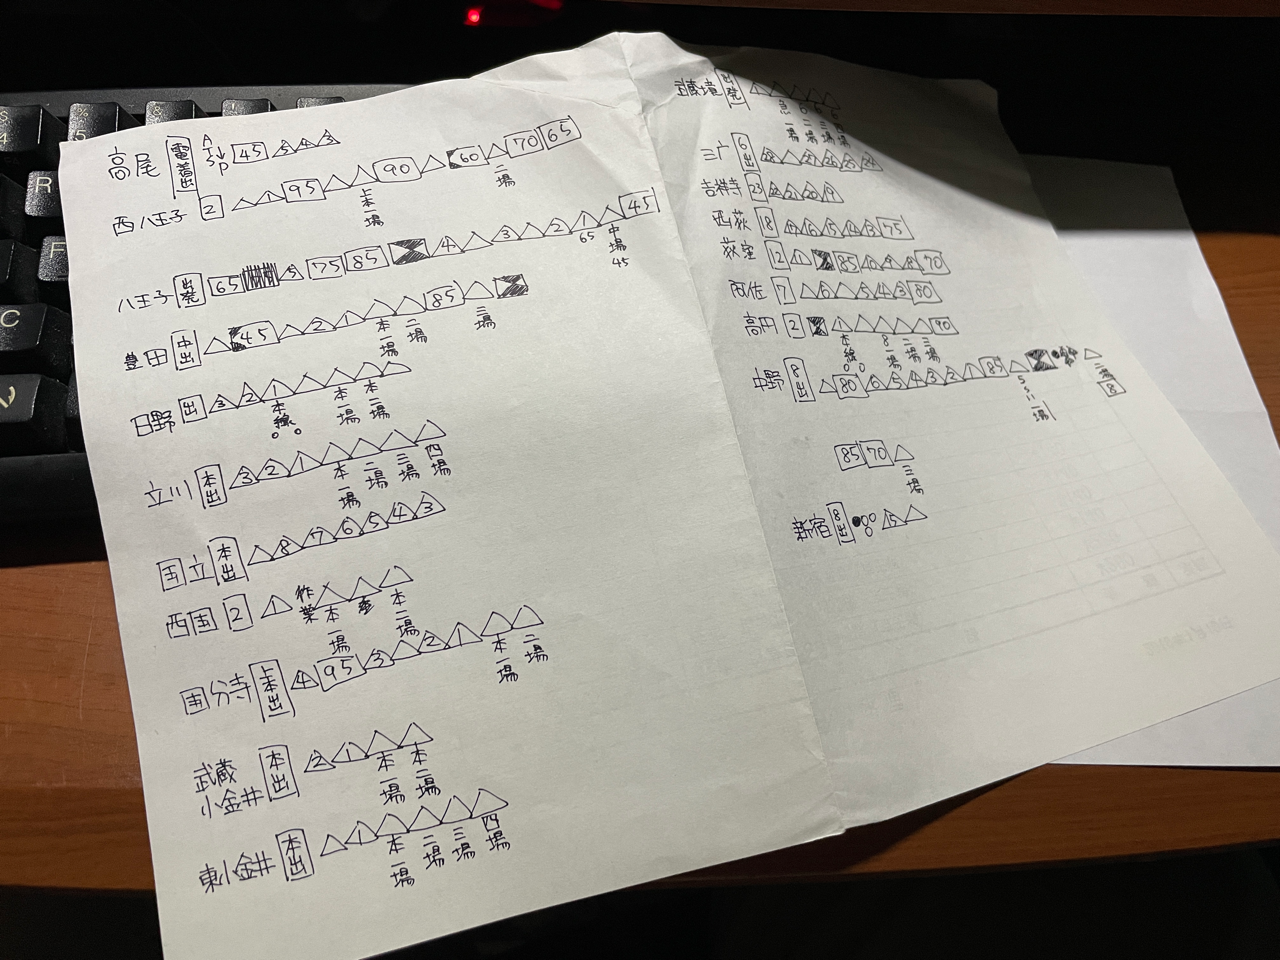 高尾 電着出 ATS↓P 45 5 4 3
西八王子 2 1 95 上本一場 90 60 二場 70 65
八王子 出発 65 5 75 85 4 3 2 1 65 中場 45 45
豊田 中出 45 2 1 本一場 二場 85 三場
日野 出 3 2 1 本線 本一場 本二場
立川 本出 3 2 1 本一場 二場 三場 四場
国立 本出 8 7 6 5 4 3
西国 2 1 作業 本一場 本二場
国分寺 上本出 4 95 3 2 1 本一場 二場
武蔵小金井 本出 2 1 本一場 本二場
東小金井 本出 1 本一場 二場 三場 四場
武蔵境 出発 一場 二場 三場 四場
三广 6出
吉祥寺 23 22 21 20 19
西荻 18 75
荻窪 12 11 85 10 9 8 70
阿佐 7 6 5 4 3 80
高円 2 1 本線 8一場 二場 三場 90
中野 8出 80 6 5 4 3 2 1 85 一場 二場 8
85 70 三場
新宿 8出 5